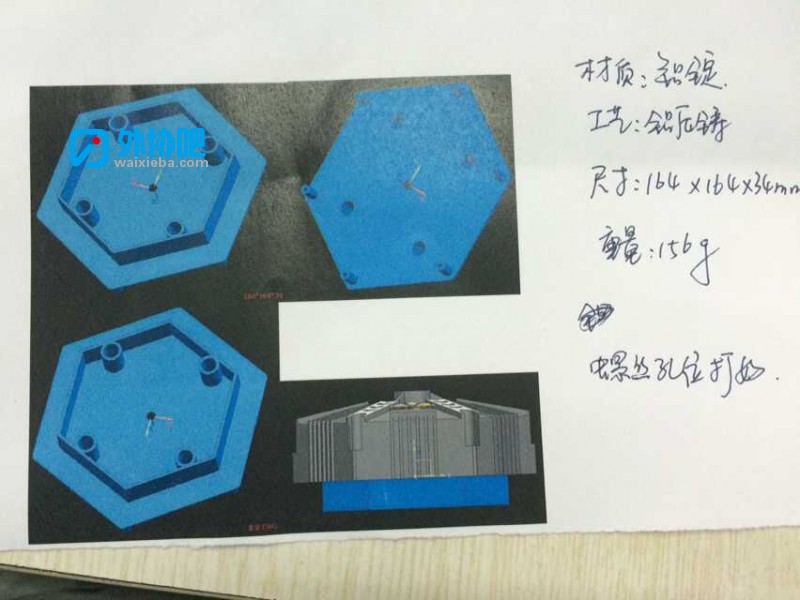 外协吧
waixieba.com
材质:铝锭.
工艺:铝压铸
尺寸:164×164×34mm
重量:156g
螺丝孔位打好.